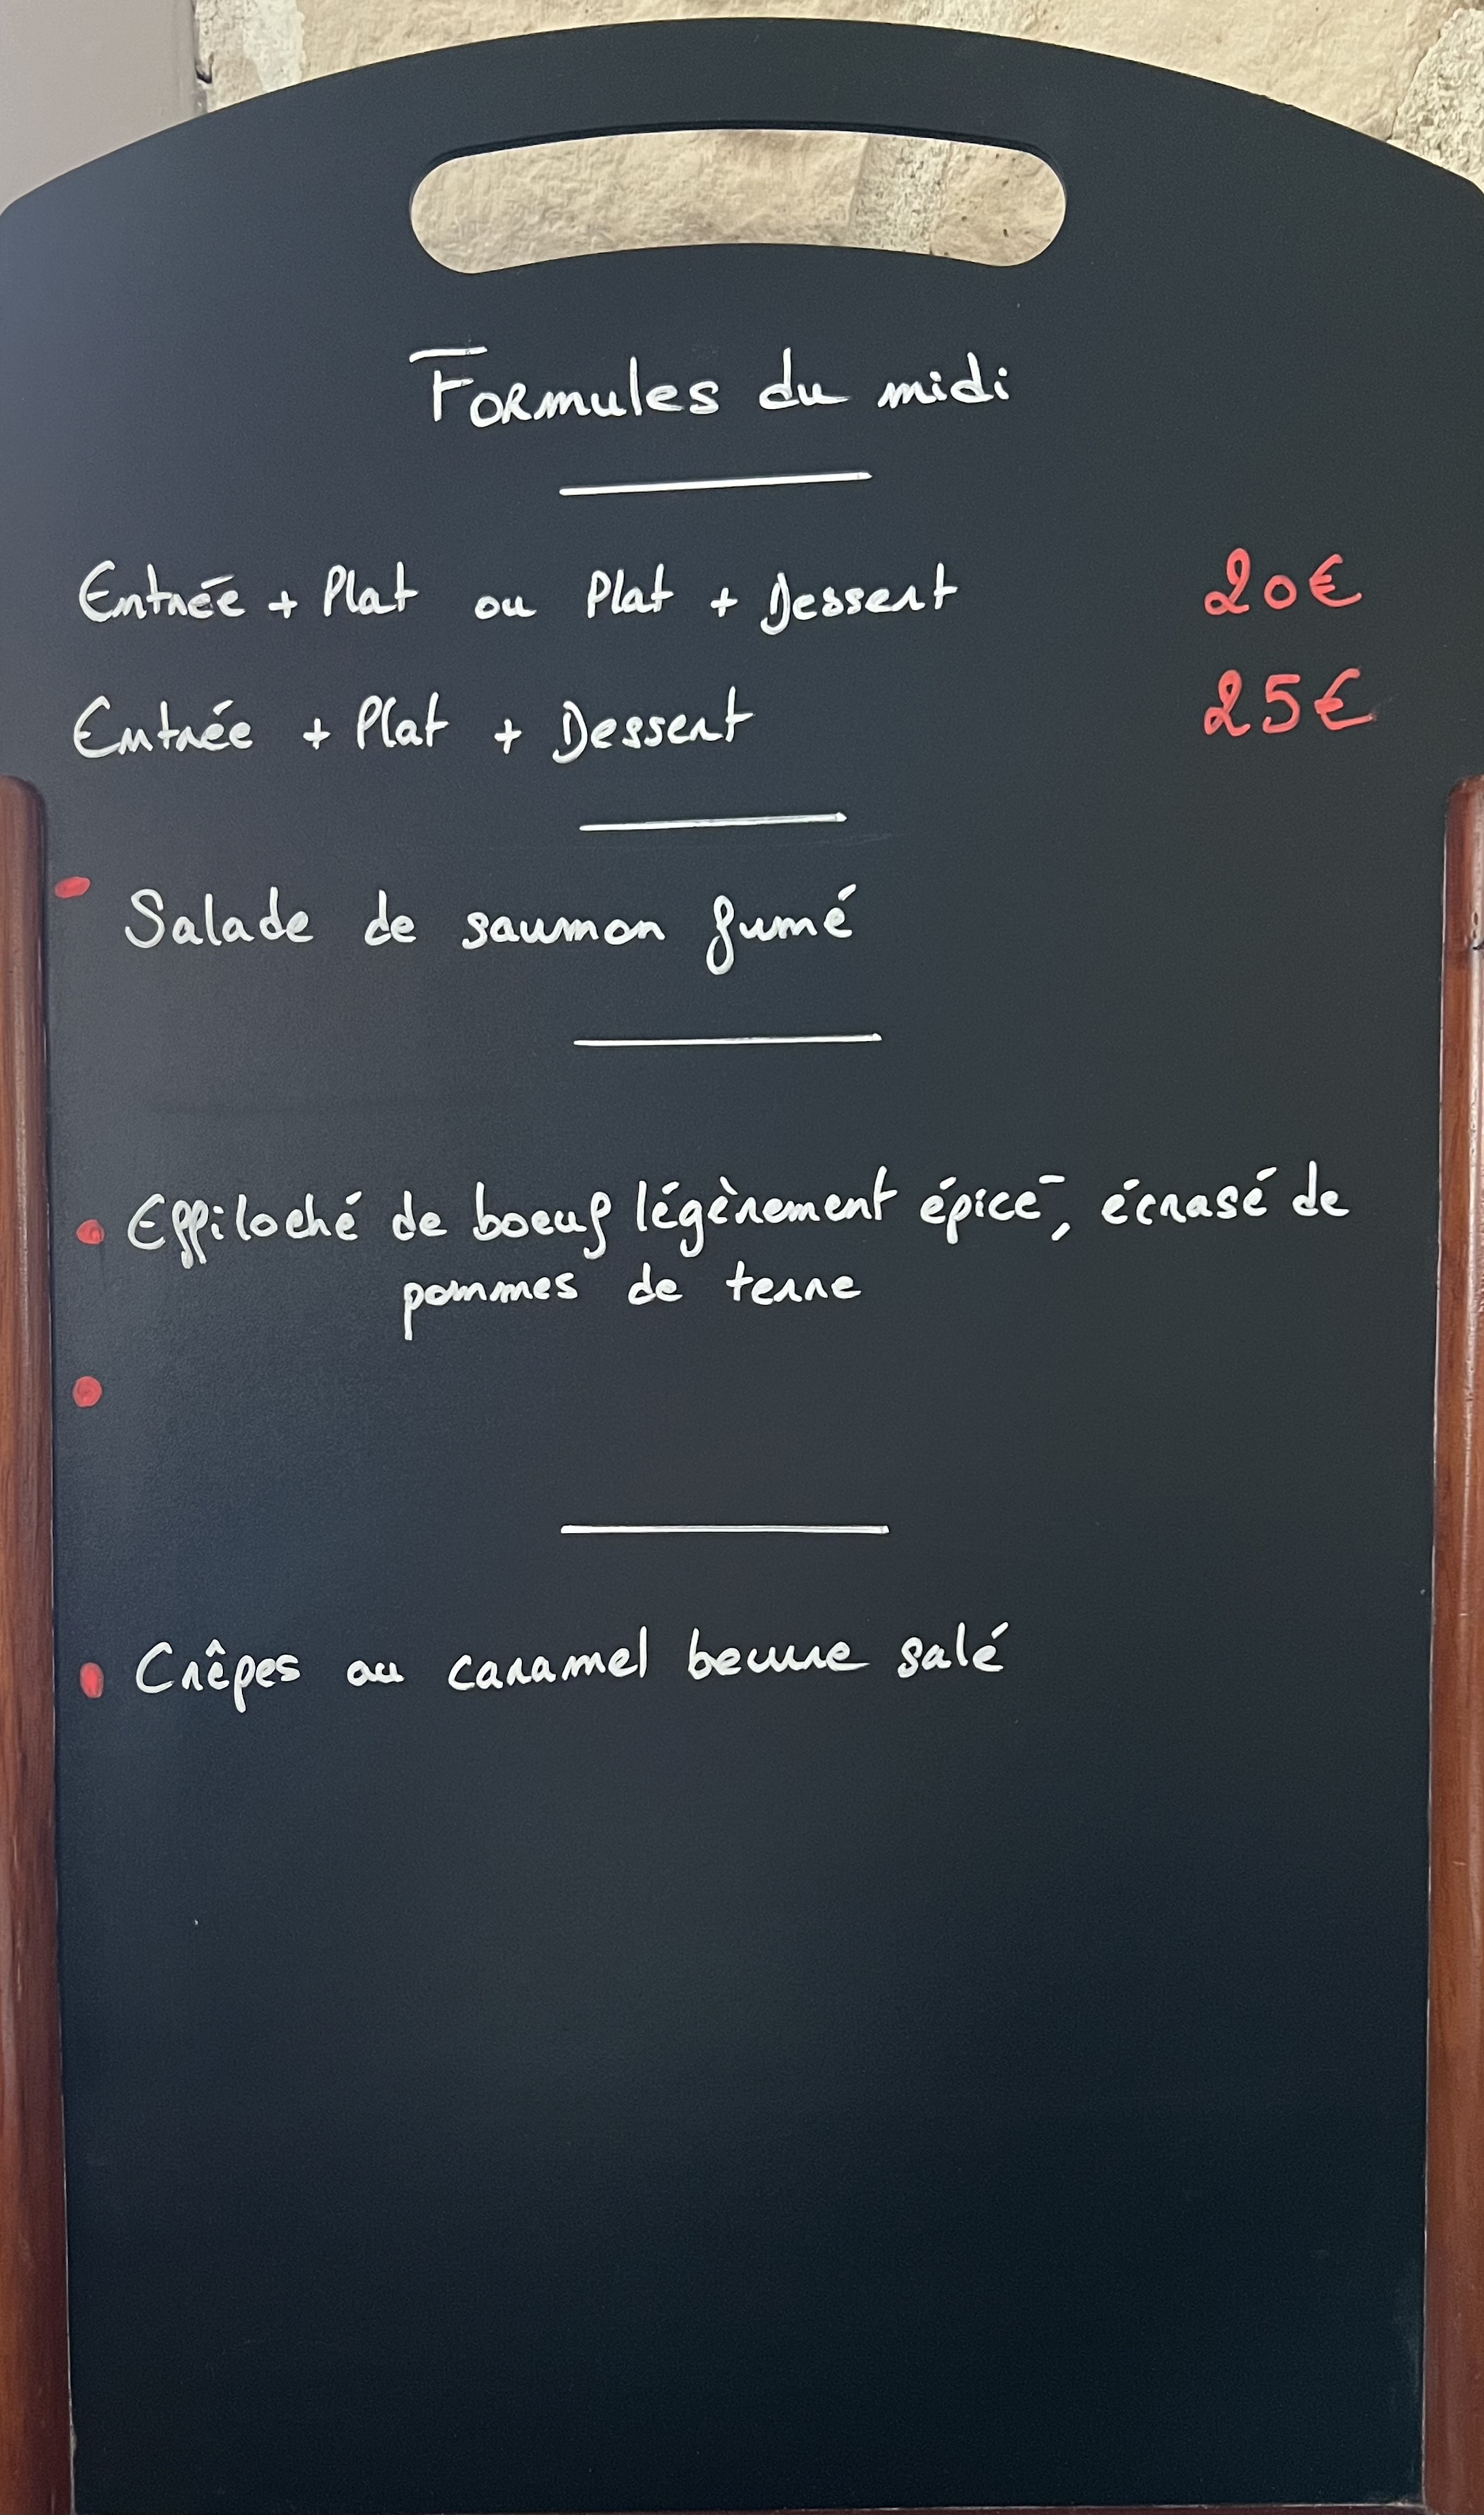 Formules du midi
Entrée + Plat ou Plat + Dessert 20€
Entrée + Plat + Dessert 25€
Salade de saumon fumé
Effiloché de boeuf légèrement épicé, écrasé de
pommes de terre
Crêpes au caramel beurre salé